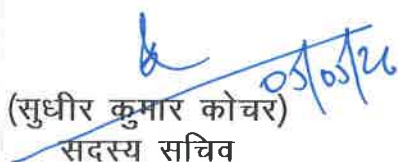 05/05/26
(सुधीर कुमार कोचर)
सदस्य सचिव